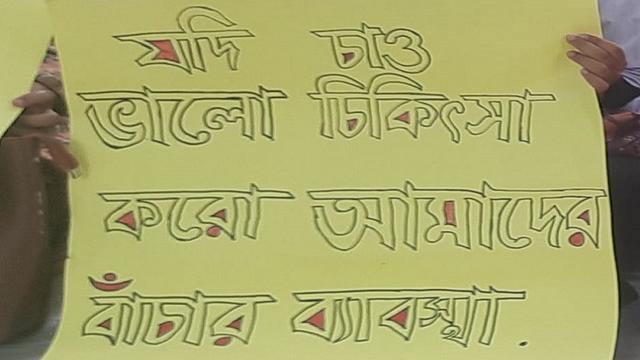 যদি চাও
ভালো চিকিৎসা
করো আমাদের
বাঁচার ব্যাবস্থা.